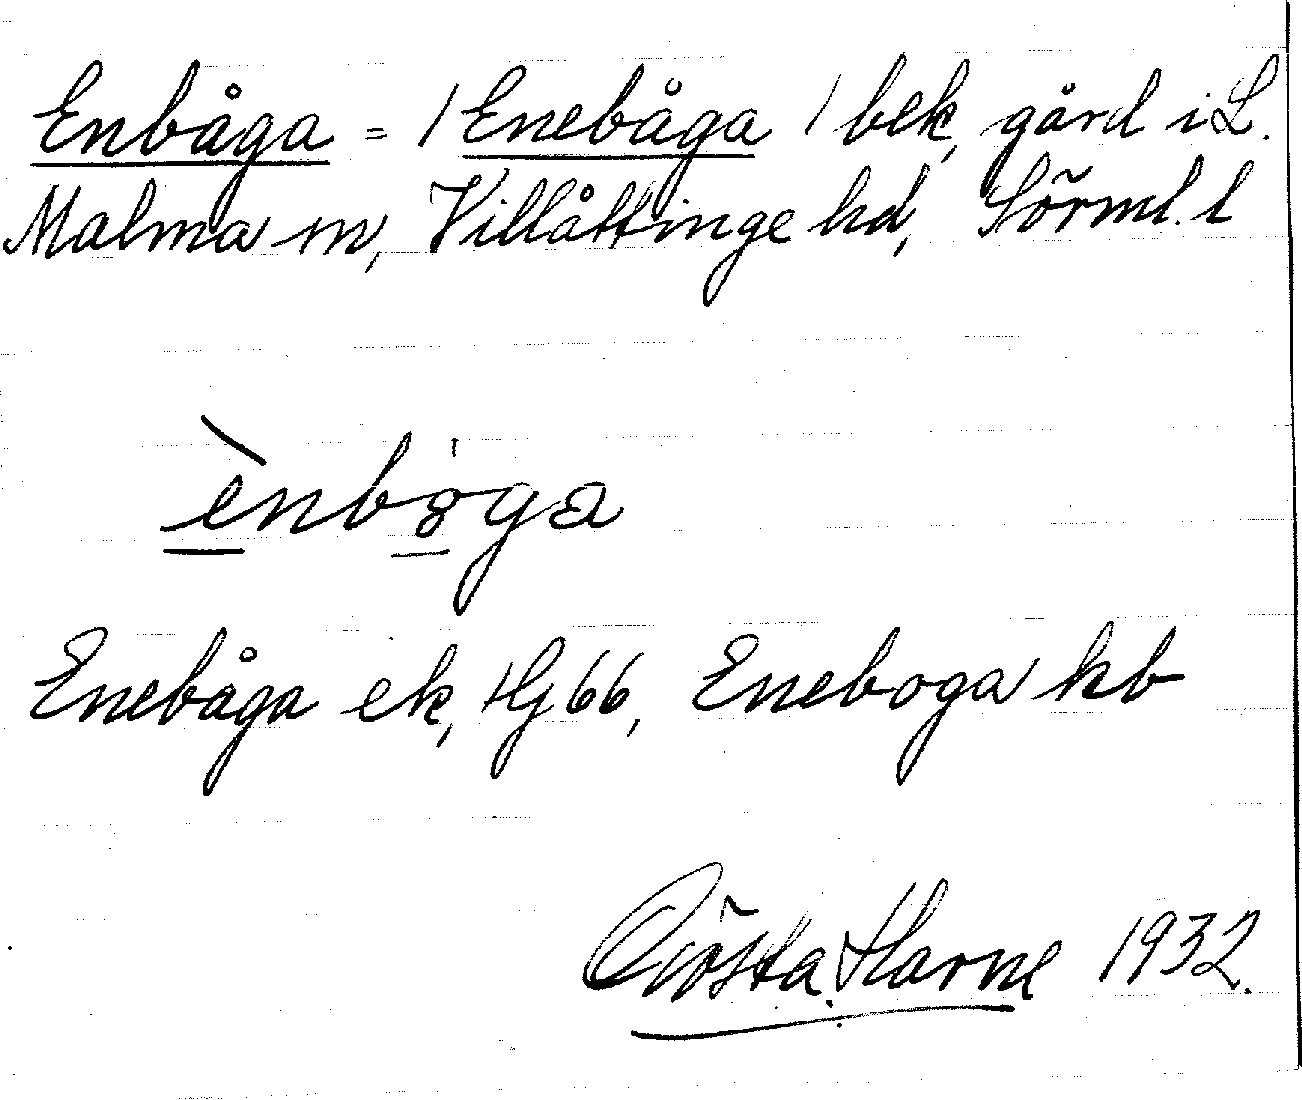 Enbåga = / Enebåga / bek, gård i L.
Malma sn, Villåttinge hd, Sörml. l
ènbȯga
Enebåga ek, Hj 66, Eneboga kb
Gösta Harne 1932.